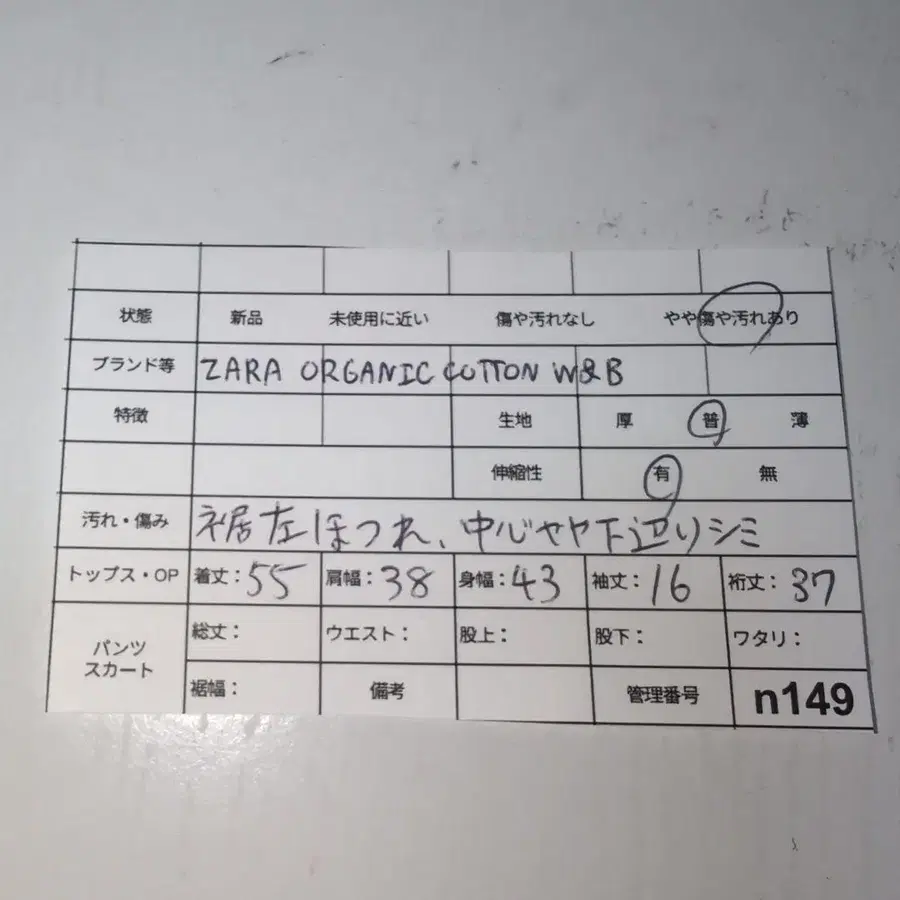 状態 新品 未使用に近い 傷や汚れなし やや傷や汚れあり
ブランド等 ZARA ORGANIC COTTON W&B
特徴 生地 厚 普 薄
伸縮性 有 無
汚れ・傷み 裾左ほつれ、中心やや下辺りシミ
トップス・OP 着丈:55 肩幅:38 身幅:43 袖丈:16 裄丈:37
パンツ スカート 総丈: ウエスト: 股上: 股下: ワタリ:
裾幅: 備考 管理番号 n149